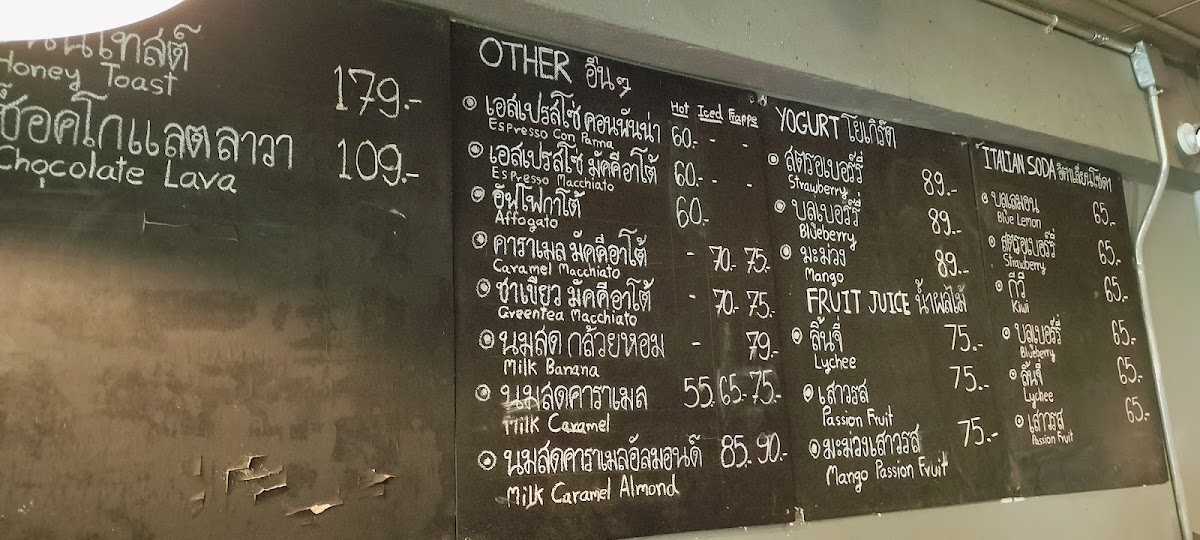 Honey Toast 179.-
ช็อคโกแลตลาวา
Chocolate Lava 109.-
OTHER อื่นๆ
Hot Iced Frappe
เอสเปรสโซ่ คอนพันน่า 60.- - -
Espresso Con Panna
เอสเปรสโซ่ มัคคีอาโต้ 60.- - -
Espresso Macchiato
อัฟโฟกาโต้ 60.-
Affogato
คาราเมล มัคคีอาโต้ - 70.- 75.-
Caramel Macchiato
ชาเขียว มัคคีอาโต้ - 70.- 75.-
Greentea Macchiato
นมสด กล้วยหอม - 79.-
Milk Banana
นมสดคาราเมล 55. 65.- 75.-
Milk Caramel
นมสดคาราเมลอัลมอนด์ 85.- 90.-
Milk Caramel Almond
YOGURT โยเกิร์ต
สตรอเบอร์รี่ 89.-
Strawberry
บลูเบอร์รี่ 89.-
Blueberry
มะม่วง 89.-
Mango
FRUIT JUICE น้ำผลไม้
ลิ้นจี่ 75.-
Lychee
เสาวรส 75.-
Passion Fruit
มะม่วงเสาวรส 75.-
Mango Passion Fruit
ITALIAN SODA อิตาเลี่ยนโซดา
บลูเลมอน 65.-
Blue Lemon
สตรอเบอร์รี่ 65.-
Strawberry
กีวี 65.-
Kiwi
บลูเบอร์รี่ 65.-
Blueberry
ลิ้นจี่ 65.-
Lychee
เสาวรส 65.-
Passion Fruit